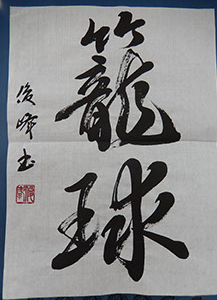 籠球
俊峰书